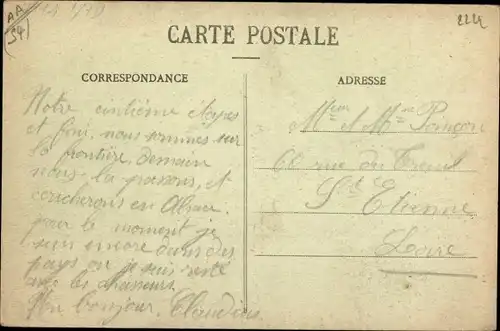 AA
(54)
2224
CARTE POSTALE
CORRESPONDANCE
ADRESSE
Notre cintième étapes
et fini. nous sommes sur
la frontière, demain
nous la passons, et
coucherons en Alsace.
pour le moment je
suis encore dans des
pays ou je suis resté
avec les chasseurs.
Un bonjour. Claudius
Mr et Mme
60 rue du Treuil
St Etienne
Loire